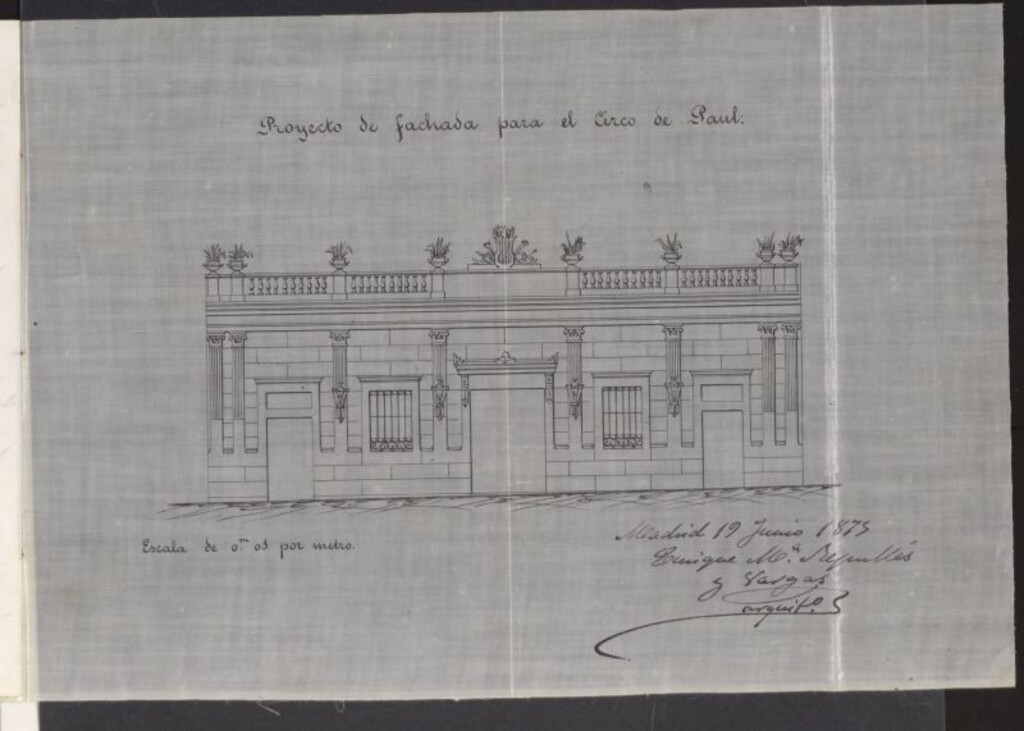 Proyecto de fachada para el Circo de Paul.
Escala de 0,m 01 por metro.
Madrid 19 Junio 1875
Enrique M.ª Repullés
y Vargas
arquit.º